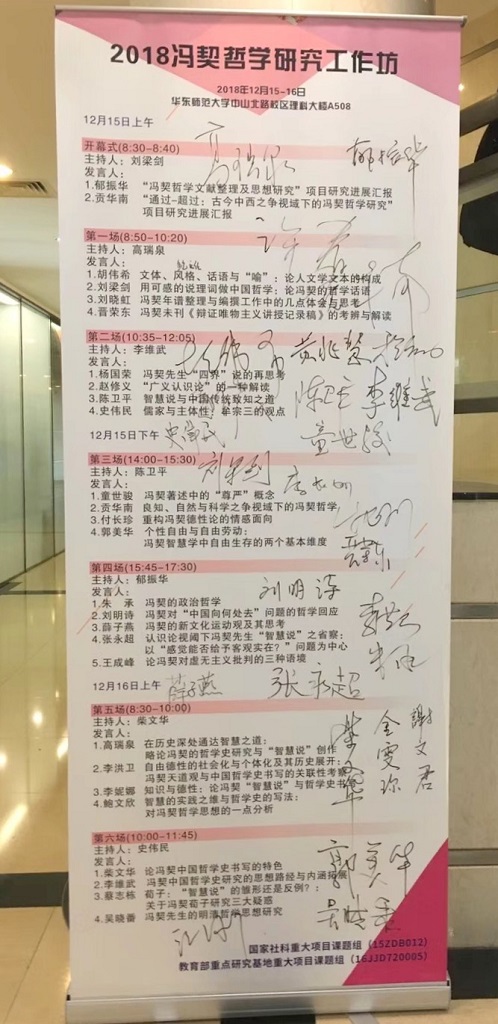 2018冯契哲学研究工作坊
2018年12月15-16日
华东师范大学中山北路校区理科大楼A508
12月15日上午
开幕式(8:30-8:40)
主持人：刘梁剑
发言人：
1.郁振华 “冯契哲学文献整理及思想研究”项目研究进展汇报
2.贡华南 “通过-超过：古今中西之争视域下的冯契哲学研究”
项目研究进展汇报
高瑞泉
郁振华
第一场(8:50-10:20)
主持人：高瑞泉
发言人：
1.胡伟希 文体、风格、话语与“喻”：论人文学文本的构成
2.刘梁剑 用可感的说理词做中国哲学：论冯契的哲学话语
3.刘晓虹 冯契年谱整理与编撰工作中的几点体会与思考
4.晋荣东 冯契未刊《辩证唯物主义讲授记录稿》的考辨与解读
第二场(10:35-12:05)
主持人：李维武
发言人：
1.杨国荣 冯契先生“四界”说的再思考
2.赵修义 “广义认识论”的一种解读
3.陈卫平 智慧说与中国传统致知之道
4.史伟民 儒家与主体性：牟宗三的观点
陈卫平 李维武
童世骏
12月15日下午
史偉民
第三场(14:00-15:30)
主持人：陈卫平
发言人：
1.童世骏 冯契著述中的“尊严”概念
2.贡华南 良知、自然与科学之争视域下的冯契哲学
3.付长珍 重构冯契德性论的情感面向
4.郭美华 个性自由与自由劳动：
冯契智慧学中自由生存的两个基本维度
刘梁剑
第四场(15:45-17:30)
主持人：郁振华
发言人：
1.朱 承 冯契的政治哲学
2.刘明诗 冯契对“中国向何处去”问题的哲学回应
3.薛子燕 冯契的新文化运动观及其思考
4.张永超 认识论视阈下冯契先生“智慧说”之省察：
以“感觉能否给予客观实在？”问题为中心
5.王成峰 论冯契对虚无主义批判的三种语境
刘明诗
12月16日上午
薛子燕
张永超
第五场(8:30-10:00)
主持人：柴文华
发言人：
1.高瑞泉 在历史深处通达智慧之道：
略论冯契的哲学史研究与“智慧说”创作
2.李洪卫 自由德性的社会化与个体化及其历史展开：
冯契天道观与中国哲学史书写的关联性考察
3.李妮娜 知识与德性：论冯契“智慧说”与哲学史书
4.鲍文欣 智慧的实践之维与哲学史的写法：
对冯契哲学思想的一点分析
柴文华
金雯珎
謝文君
第六场(10:00-11:45)
主持人：史伟民
发言人：
1.柴文华 论冯契中国哲学史书写的特色
2.李维武 冯契中国哲学史研究的思想路经与内涵拓展
3.蔡志栋 荀子：“智慧”的雏形还是反例？：
关于冯契荀子研究三大疑惑
4.吴晓番 冯契先生的明清哲学思想研究
郭美华
吴晓番
国家社科重大项目课题组 (15ZDB012)
教育部重点研究基地重大项目课题组 (16JJD720005)